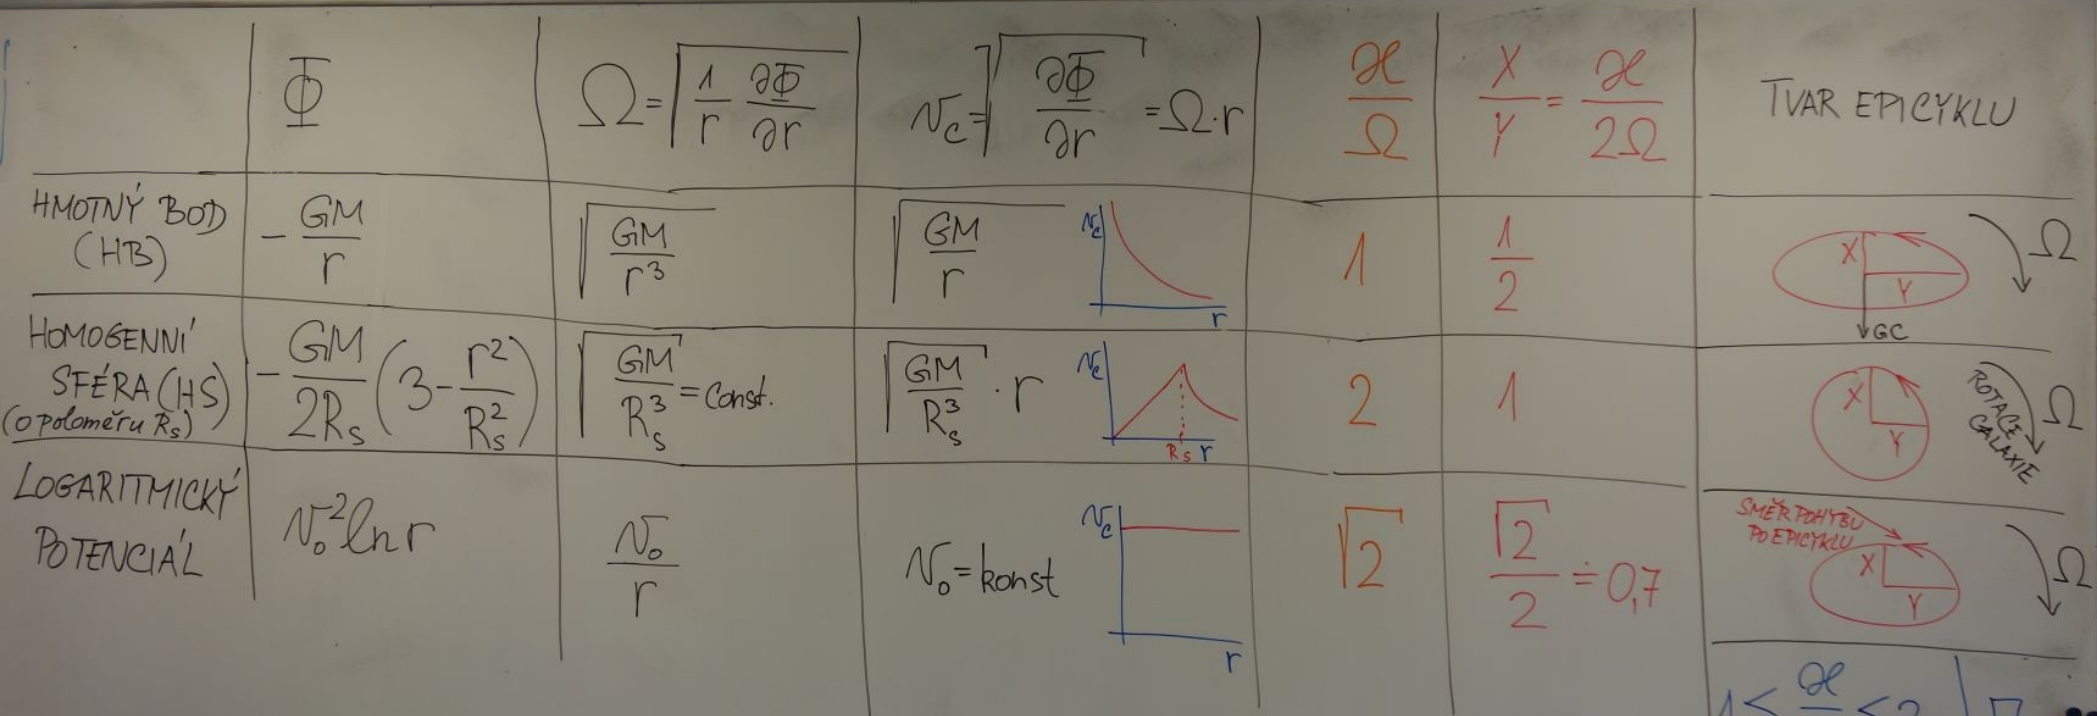 Φ
Ω = √(1/r ∂Φ/∂r)
v_c = √(∂Φ/∂r) = Ω·r
ϰ/Ω
X/Y = ϰ/2Ω
TVAR EPICYKLU
HMOTNÝ BOD
(HB)
- GM/r
√(GM/r³)
√(GM/r)
v_c
r
1
1/2
X
Y
GC
Ω
HOMOGENNÍ
SFÉRA (HS)
(o poloměru R_s)
- GM/2R_s (3 - r²/R_s²)
√(GM/R_s³) = const.
√(GM/R_s³) · r
v_c
R_s r
2
1
X
Y
ROTACE
GALAXIE
Ω
LOGARITMICKÝ
POTENCIÁL
v_o² ln r
v_o/r
v_o = konst
v_c
r
√2
√2/2 ≐ 0,7
SMĚR POHYBU
PO EPICYKLU
X
Y
Ω
1 < ϰ/ < 2